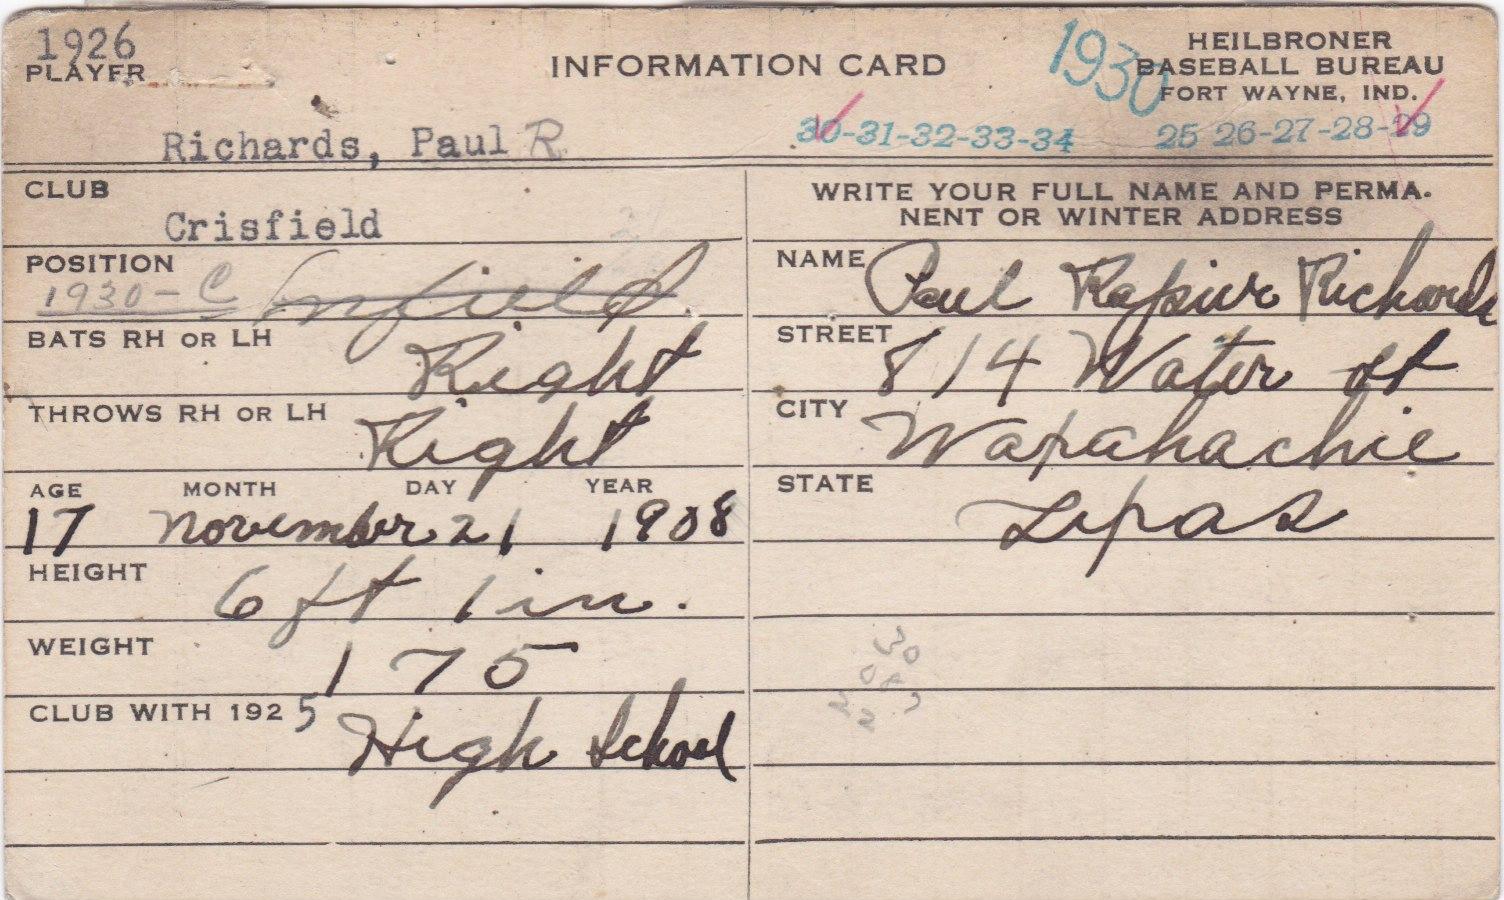 1926
PLAYER
INFORMATION CARD
1930
HEILBRONER
BASEBALL BUREAU
FORT WAYNE, IND.
Richards, Paul R
30-31-32-33-34 25 26-27-28-29
CLUB
Crisfield
WRITE YOUR FULL NAME AND PERMA-
NENT OR WINTER ADDRESS
POSITION
1930-C Infield
NAME Paul Rapier Richards
BATS RH OR LH Right
STREET 814 Water St
THROWS RH OR LH Right
CITY Waxahachie
AGE MONTH DAY YEAR
17 November 21 1908
STATE Texas
HEIGHT 6 ft 1 in.
WEIGHT 175
CLUB WITH 1925 High School
30